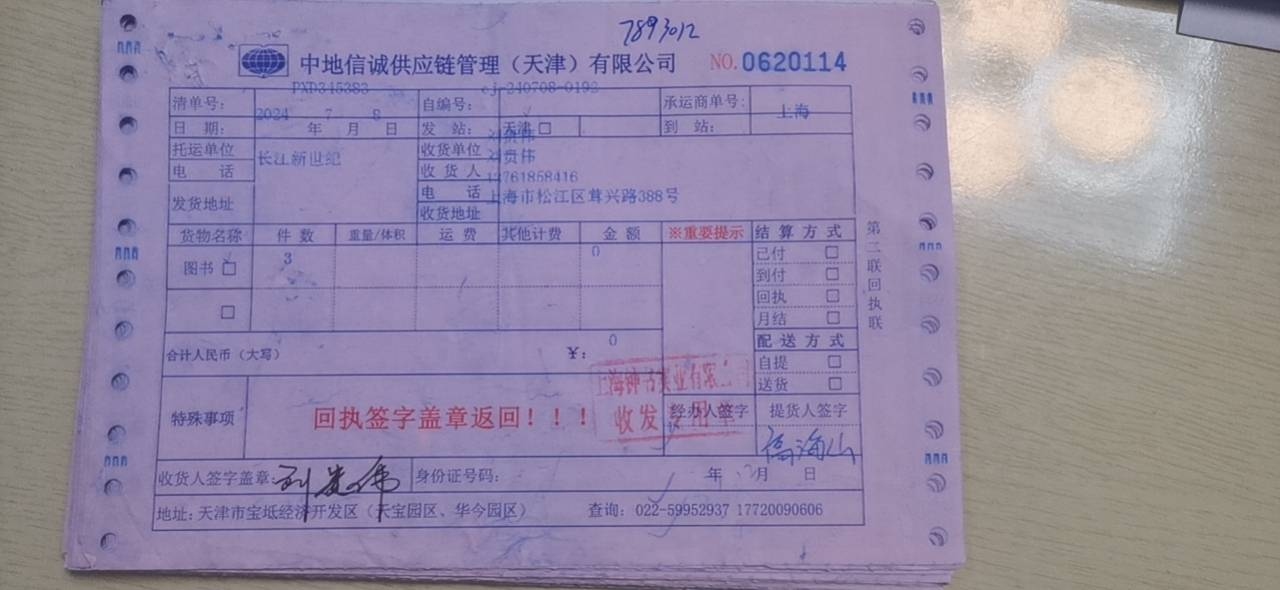 7893012
中地信诚供应链管理（天津）有限公司 NO.0620114
清单号： PXD345383 自编号： cj-240708-0192 承运商单号：
日 期： 2024 年 7 月 8 日 发 站： 天津□ 到 站： 上海
托运单位 长江新世纪 收货单位 刘贵伟
电 话 收 货 人 刘贵伟
电 话 13761858416
发货地址 收货地址 上海市松江区茸兴路388号
货物名称 件 数 重量/体积 运 费 其他计费 金 额 ※重要提示 结 算 方 式
图书□ 3 0 已付 □
到付 □
回执 □
□ 月结 □
合计人民币（大写） ￥： 0 配 送 方 式
自提 □
送货 □
特殊事项 回执签字盖章返回！！！ 经办人签字 提货人签字
上海钟书实业有限公司
收发专用章
收货人签字盖章： 刘贵伟 身份证号码： 年 月 日
地址：天津市宝坻经济开发区（天宝园区、华今园区） 查询：022-59952937 17720090606
第二联回执联